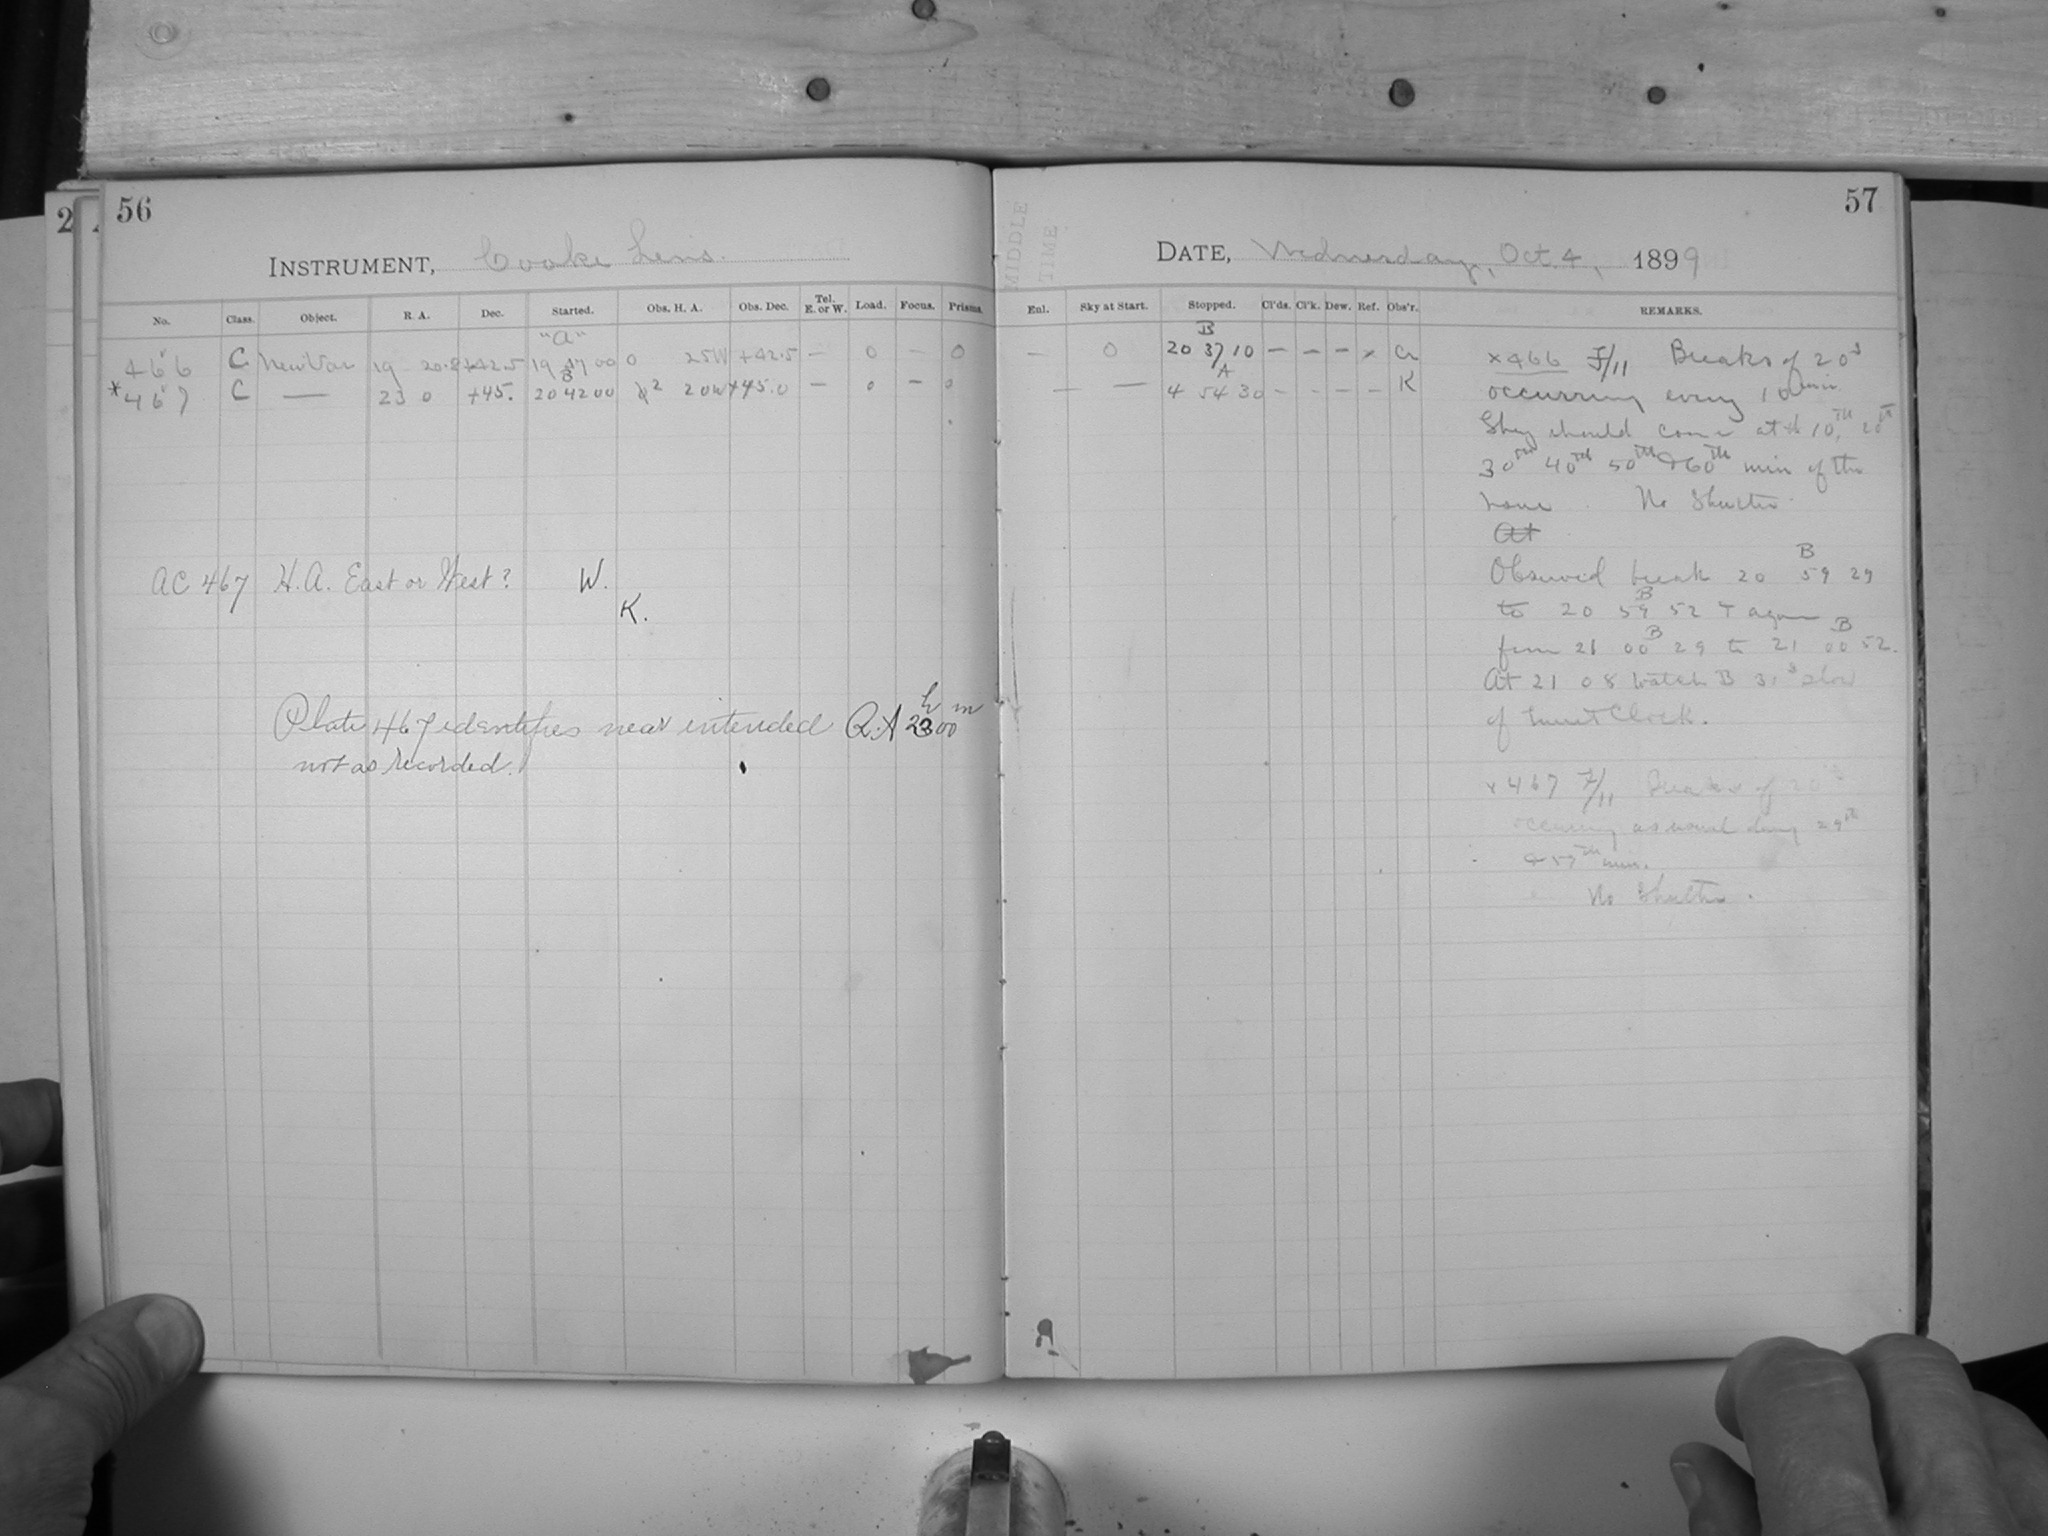 2
56
INSTRUMENT, Cooke Lens.
No. Class. Object. R. A. Dec. Started. Obs. H. A. Obs. Dec. Tel. E. or W. Load. Focus. Prisms.
"A"
466 C New Var 19 20.8 +42.5 19 00 0 25W +42.5 — 0 — 0
B
*467 C — 23 0 +45. 20 42 00 2 20W +45.0 — 0 — 0
AC 467 H. A. East or West? W.
K.
Plate 467 identifies near intended R.A 23h 00m
not as recorded.
57
MIDDLE
TIME
DATE, Wednesday, Oct 4, 1899
Enl. Sky at Start. Stopped. Cl'ds. Cl'k. Dew. Ref. Obs'r. REMARKS.
B
— 0 20 37 10 — — — x
A
— — 4 54 30 - - - — K
x466 F/11 Breaks of 20s
occurring every 10 min
They should come at 10th, 20th
30th 40th 50th & 60th min of the
No Shutter
At
Observed break 20 59B 29
to 20 59B 52 & again
from 21 00B 29 to 21 00B 52.
At 21 08 Watch B 31s slow
of Clock.
x467 F/11 Breaks of 20s
occurring as usual 29th
& 59th min.
No Shutter.